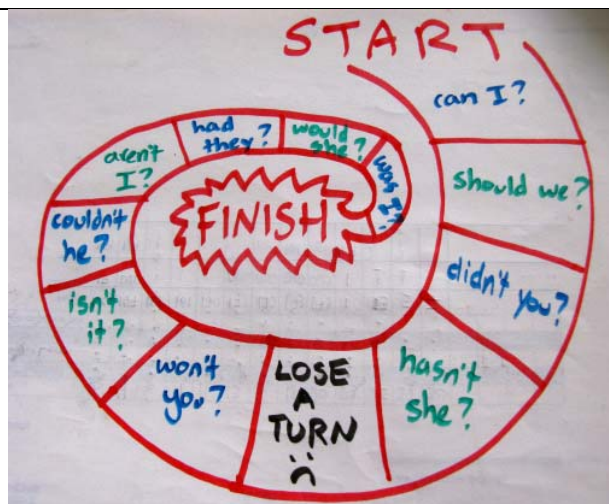 START
can I?
should we?
didn't you?
hasn't
she?
LOSE
A
TURN
won't
you?
isn't
it?
couldn't
he?
aren't
I?
had
they?
would
she?
was I?
FINISH